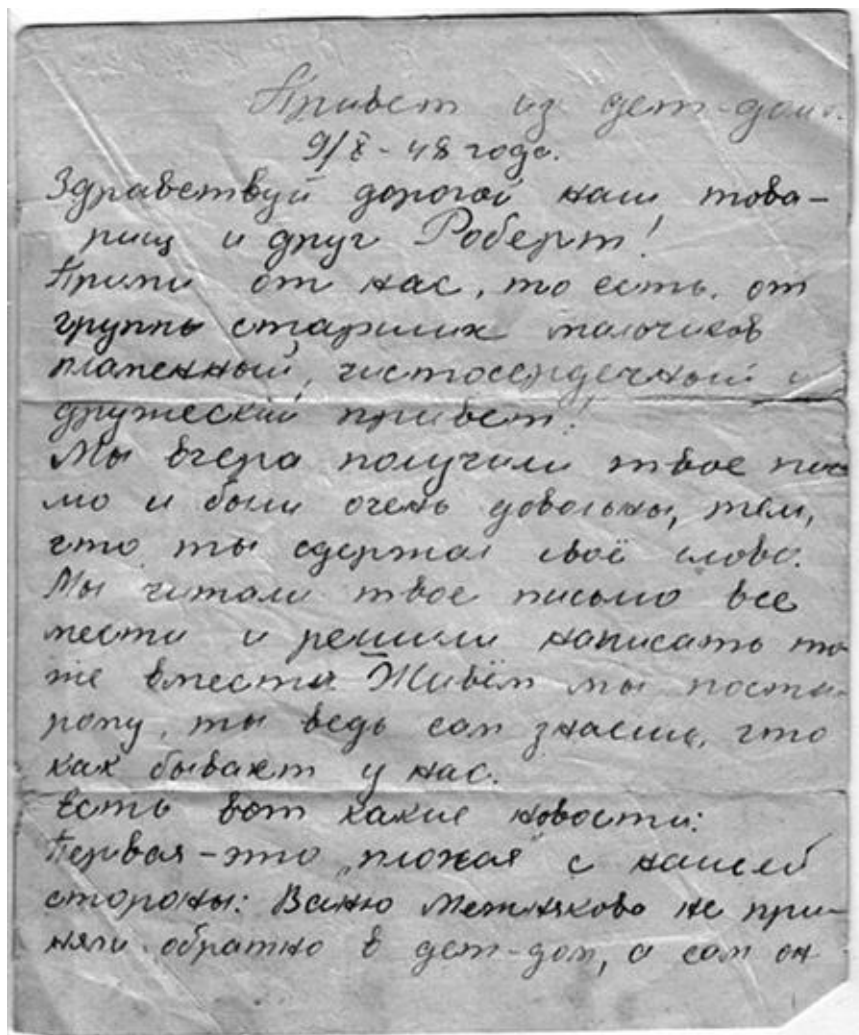 Привет из дет-дома.
9/X - 48 года.
Здравствуй дорогой наш това-
рищ и друг Роберт!
Прими от нас, то есть, от
группы старших мальчиков
пламенный, чистосердечный и
дружеский привет!
Мы вчера получили твое пись
мо и были очень довольны, тем,
что ты сдержал своё слово.
Мы читали твое письмо все
мести и решили написать то
же вместе. Живём мы поста-
рому, ты ведь сам знаешь, что
как бывает у нас.
Есть вот какие новости:
Первая - это "плохая" с нашей
стороны: Ваню не при-
няли обратно в дет-дом, а сам он